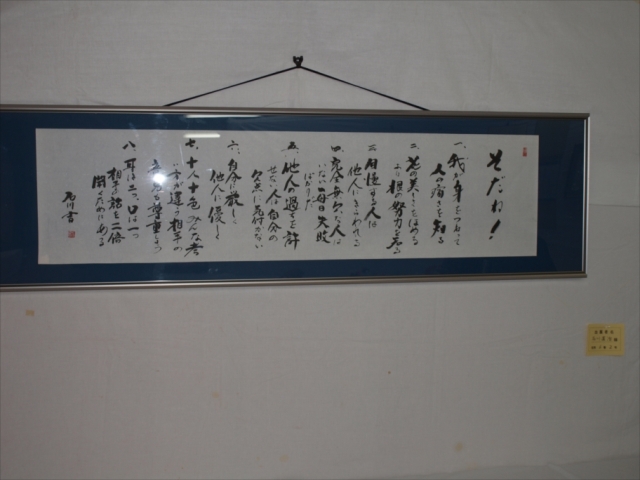 そだね！
一、我が身をつねって
人の痛さを知る
二、花の美しさをほめる
より根の努力を
三、自慢する人は
他人にきらわれる
四、完全無欠な人は
いない毎日失敗
ばかりだ
五、他人の過ちを許
せない人は自分の
欠点に気付かない
六、自分に厳しく
他人に優しく
七、十人十色みんな考
い方が違う相手の
も尊重しよう
八、耳は二つ、口は一つ
相手の話を二倍
聞くためにある
書